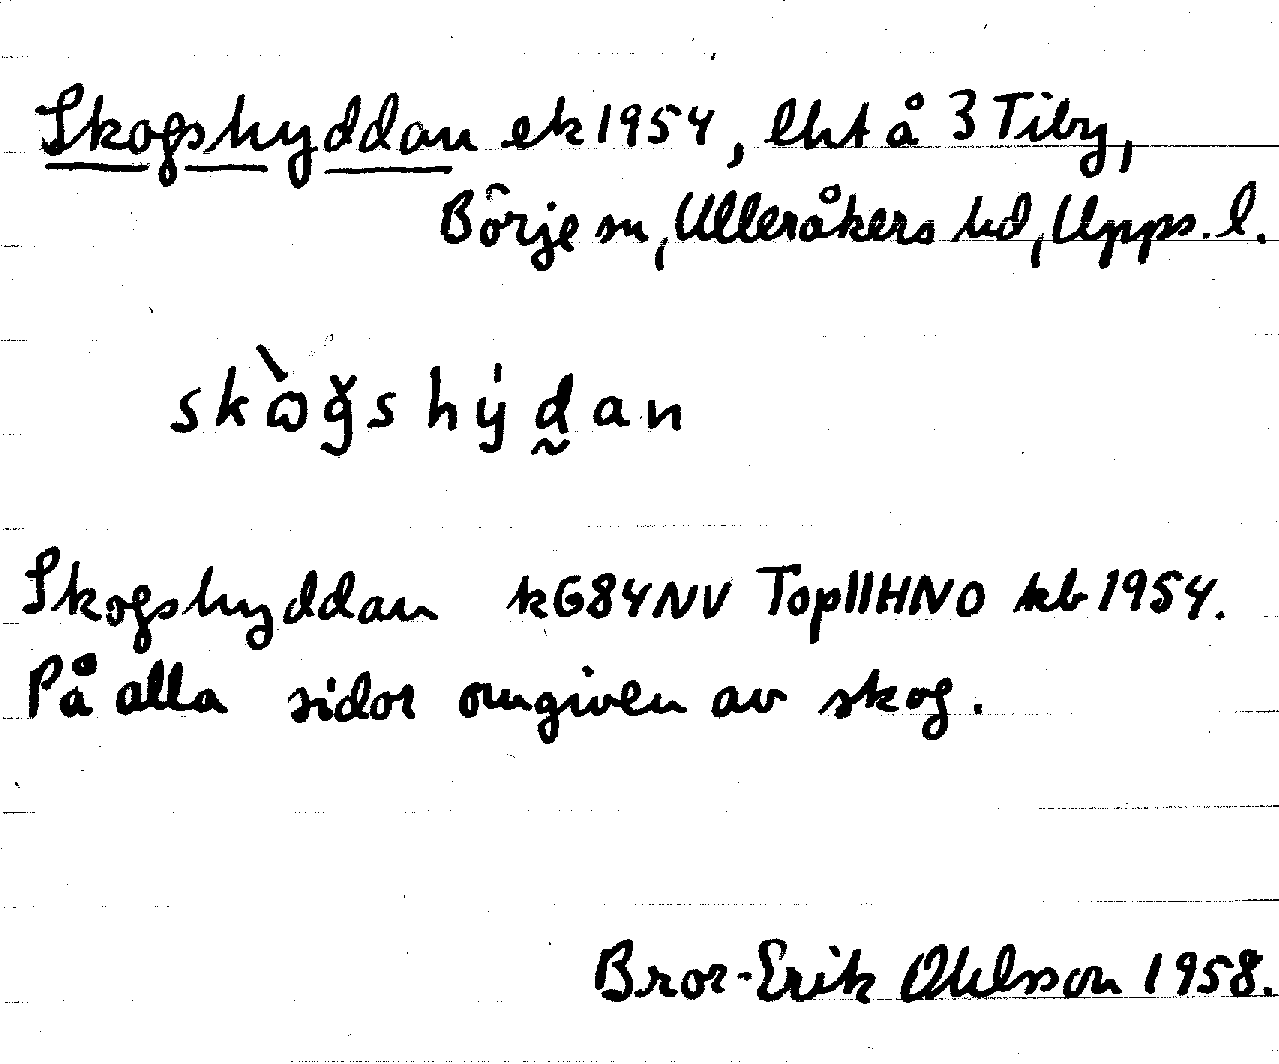 Skogshyddan ek 1954, lht å 3 Tiby,
Börje sn, Ulleråkers hd, Upps. l.
skòǧshýd̰an
Skogshyddan k684NV Top11HNO kb 1954.
På alla sidor omgiven av skog.
Bror-Erik Ohlsson 1958.